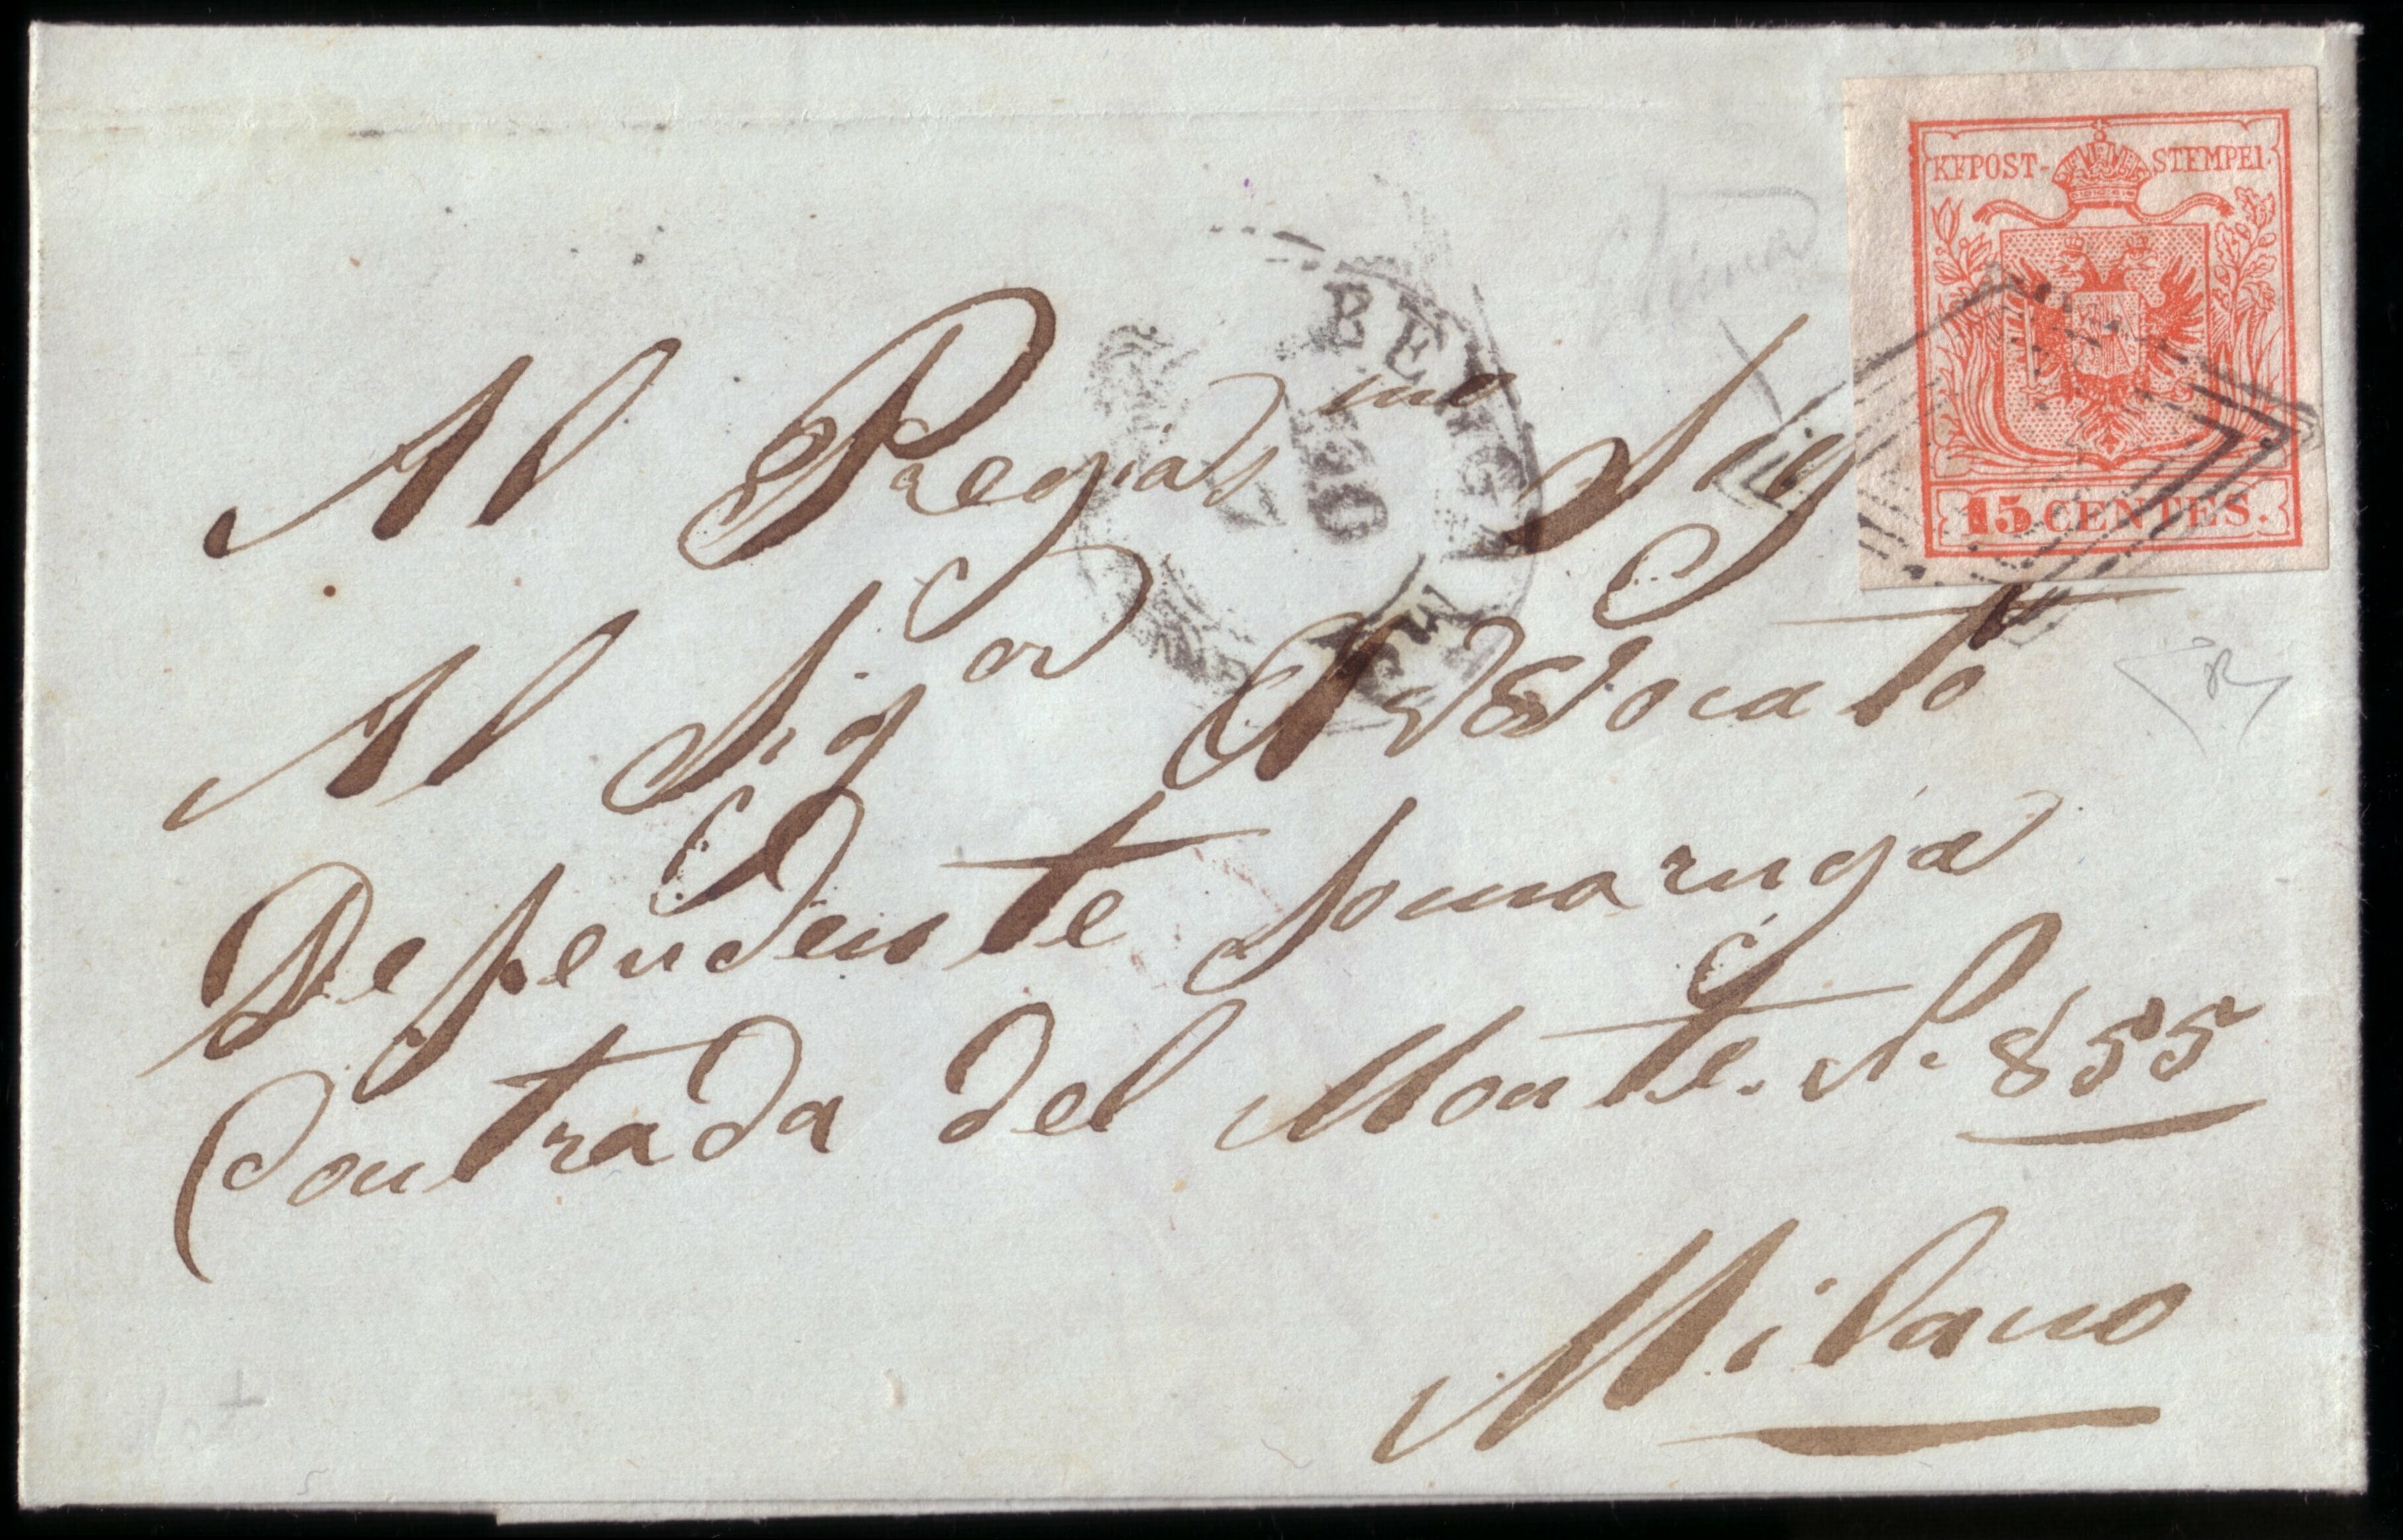 KK POST-STEMPEL
15 CENTES.
Al Pregiatmo Sig
Al Sigor Avvocato
Dependente Somaruga
Contrada del Monte. No 855
Milano